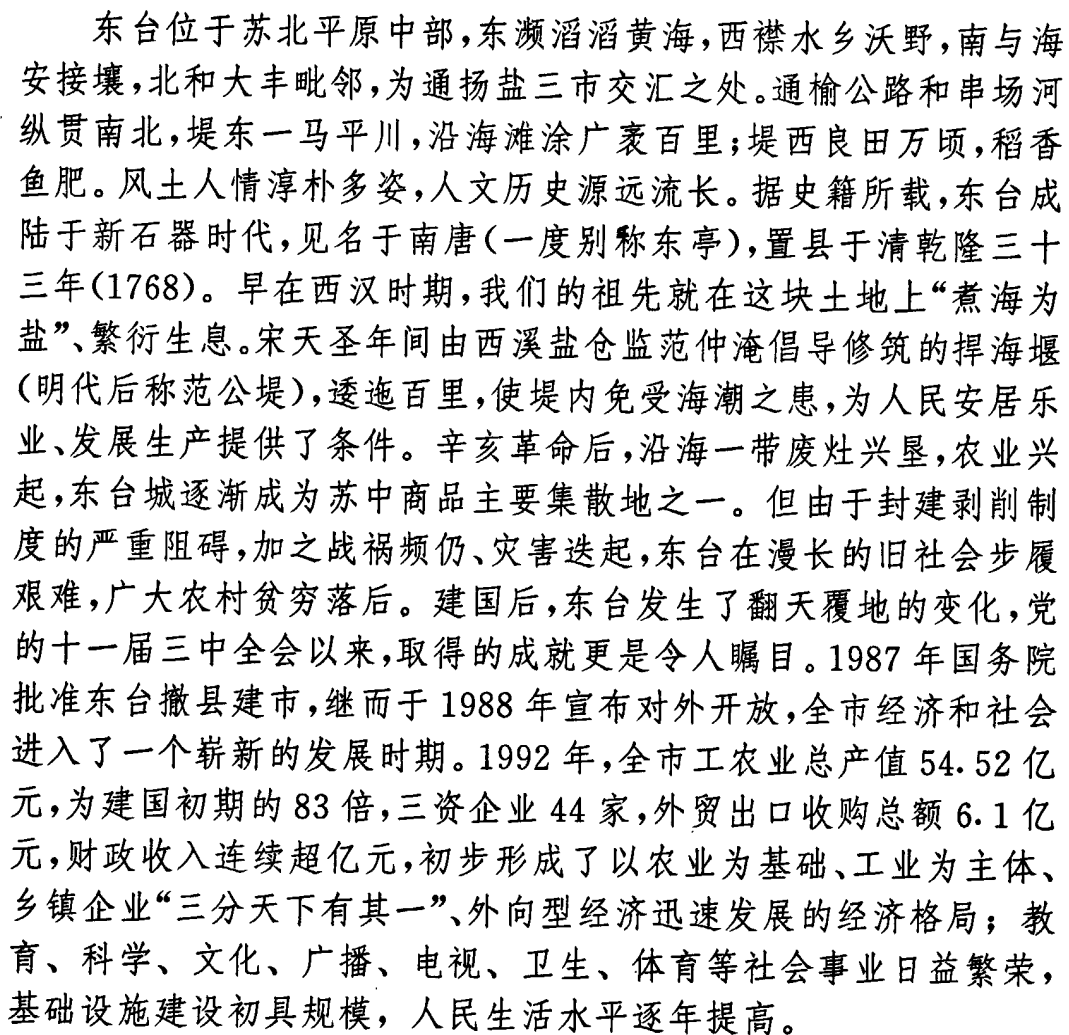 东台位于苏北平原中部,东濒滔滔黄海,西襟水乡沃野,南与海
安接壤,北和大丰毗邻,为通扬盐三市交汇之处。通榆公路和串场河
纵贯南北,堤东一马平川,沿海滩涂广袤百里;堤西良田万顷,稻香
鱼肥。风土人情淳朴多姿,人文历史源远流长。据史籍所载,东台成
陆于新石器时代,见名于南唐(一度别称东亭),置县于清乾隆三十
三年(1768)。早在西汉时期,我们的祖先就在这块土地上“煮海为
盐”、繁衍生息。宋天圣年间由西溪盐仓监范仲淹倡导修筑的捍海堰
(明代后称范公堤),逶迤百里,使堤内免受海潮之患,为人民安居乐
业、发展生产提供了条件。辛亥革命后,沿海一带废灶兴垦,农业兴
起,东台城逐渐成为苏中商品主要集散地之一。但由于封建剥削制
度的严重阻碍,加之战祸频仍、灾害迭起,东台在漫长的旧社会步履
艰难,广大农村贫穷落后。建国后,东台发生了翻天覆地的变化,党
的十一届三中全会以来,取得的成就更是令人瞩目。1987年国务院
批准东台撤县建市,继而于1988年宣布对外开放,全市经济和社会
进入了一个崭新的发展时期。1992年,全市工农业总产值54.52亿
元,为建国初期的83倍,三资企业44家,外贸出口收购总额6.1亿
元,财政收入连续超亿元,初步形成了以农业为基础、工业为主体、
乡镇企业“三分天下有其一”、外向型经济迅速发展的经济格局；教
育、科学、文化、广播、电视、卫生、体育等社会事业日益繁荣，
基础设施建设初具规模，人民生活水平逐年提高。